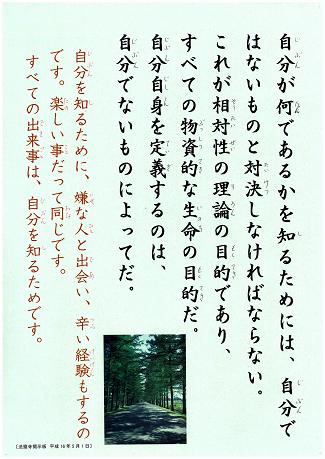 自分が何であるかを知るためには、自分で
はないものと対決しなければならない。
これが相対性の理論の目的であり、
すべての物資的な生命の目的だ。
自分自身を定義するのは、
自分でないものによってだ。
自分を知るために、嫌な人と出会い、辛い経験もするの
です。楽しい事だって同じです。
すべての出来事は、自分を知るためです。
掲示板 平成16年5月1日